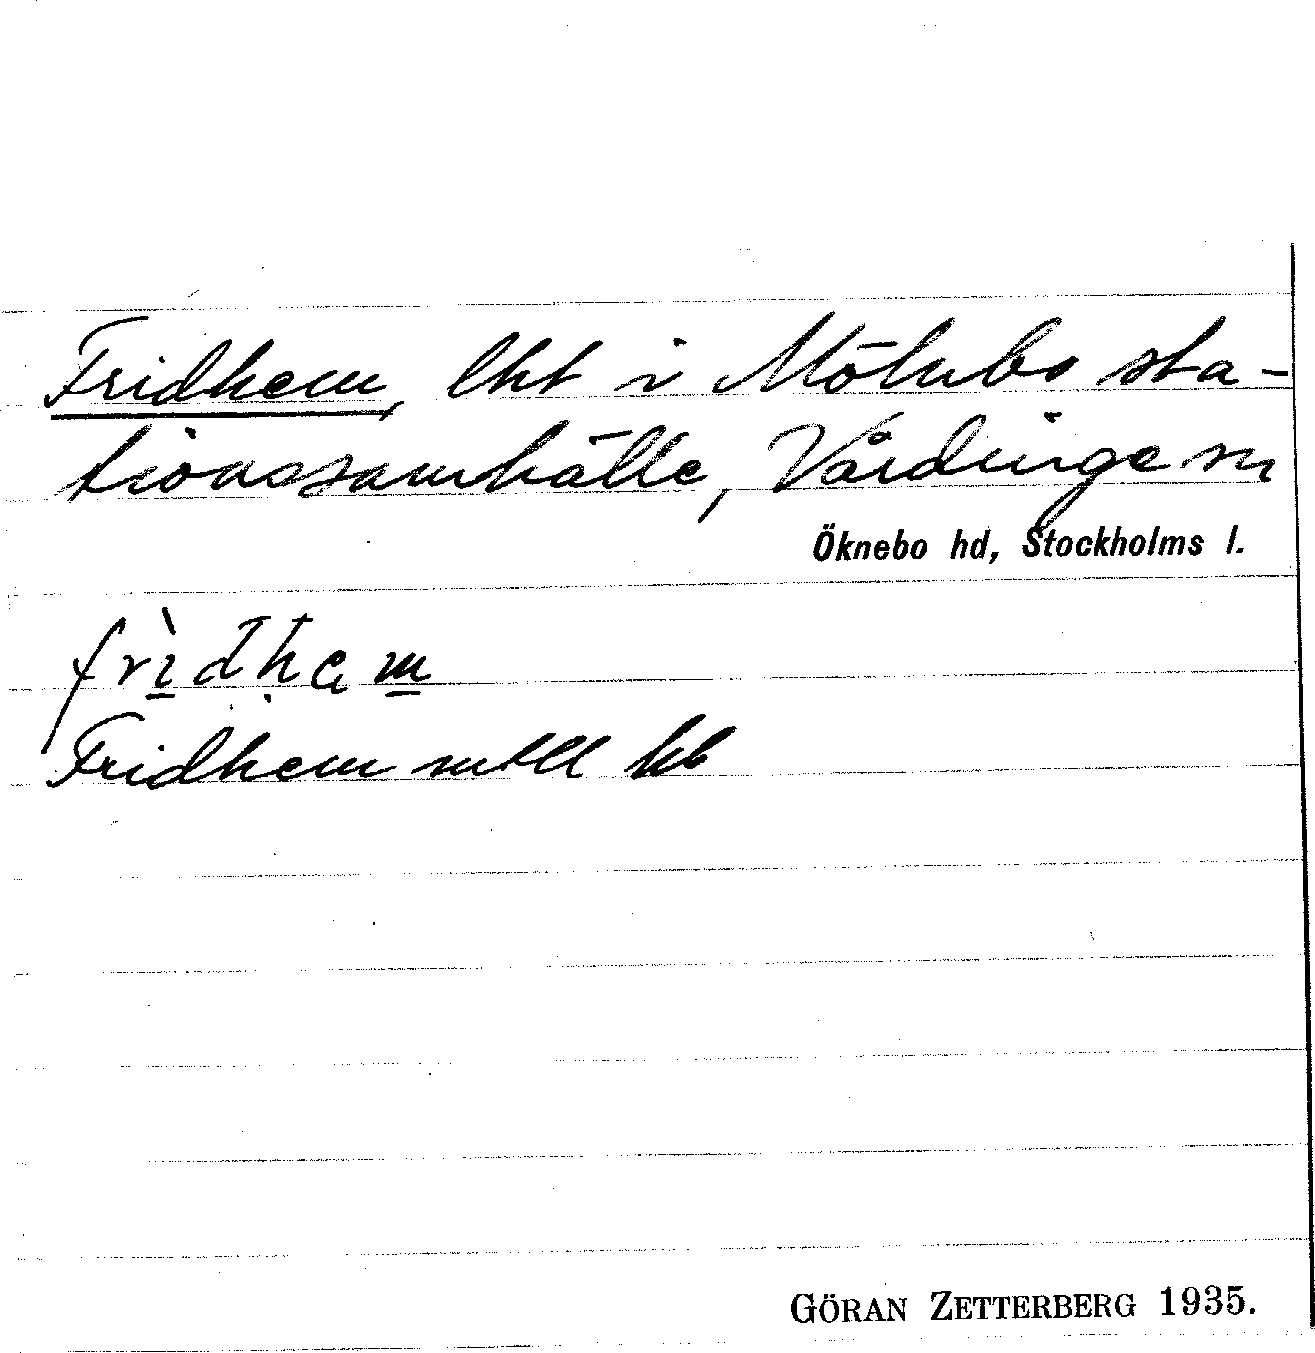 Fridhem, lht i Mölnbo sta-
tionssamhälle, Vårdinge sn
Öknebo hd, Stockholms l.
frìdhem
Fridhem mtll kb
GÖRAN ZETTERBERG 1935.